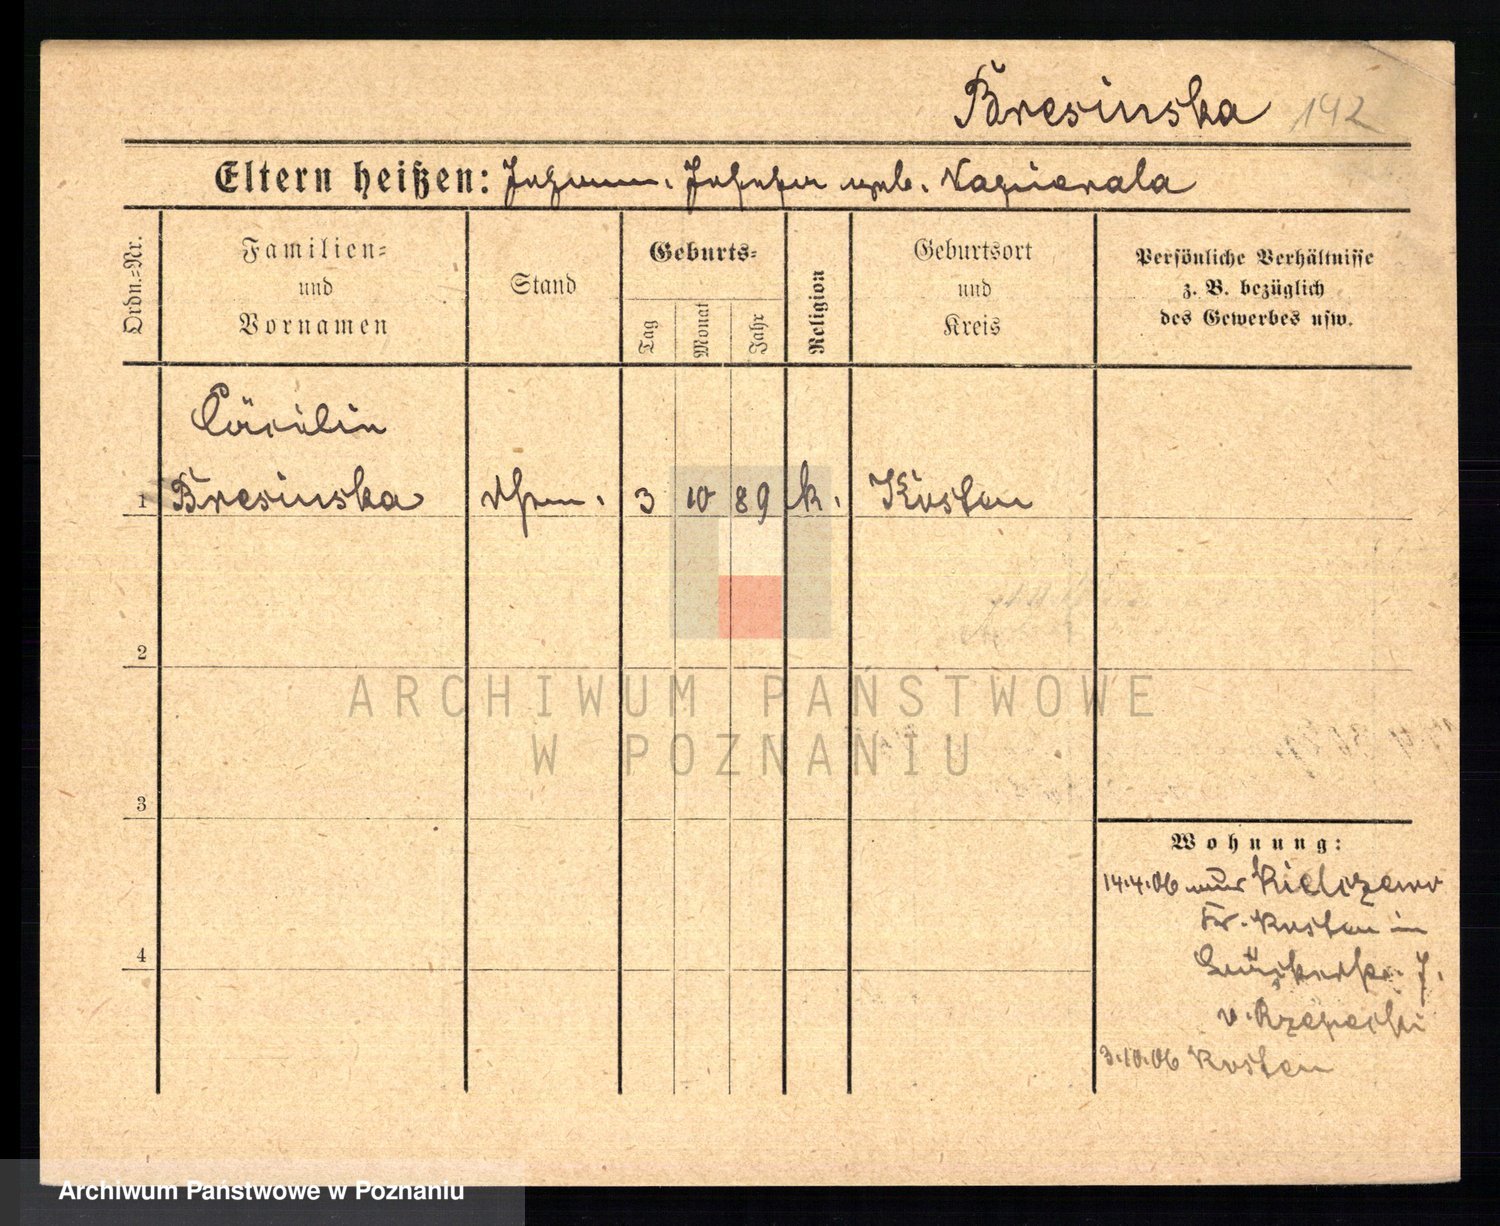 Bresinska 142
Eltern heißen: Johann. Josefa geb. Napierala
Ordn.-Nr.
Familien-
und
Vornamen
Stand
Geburts-
Tag
Monat
Jahr
Religion
Geburtsort
und
Kreis
Persönliche Verhältnisse
z. B. bezüglich
des Gewerbes usw.
Cäcilie
1 Bresinska 3 10 89 k. Kosten
2
3
4
Wohnung:
14.4.06 Kielczewo
Kr. Kosten in
v. Rzepecki
3.10.06 Kosten
ARCHIWUM PAŃSTWOWE
W POZNANIU
Archiwum Państwowe w Poznaniu